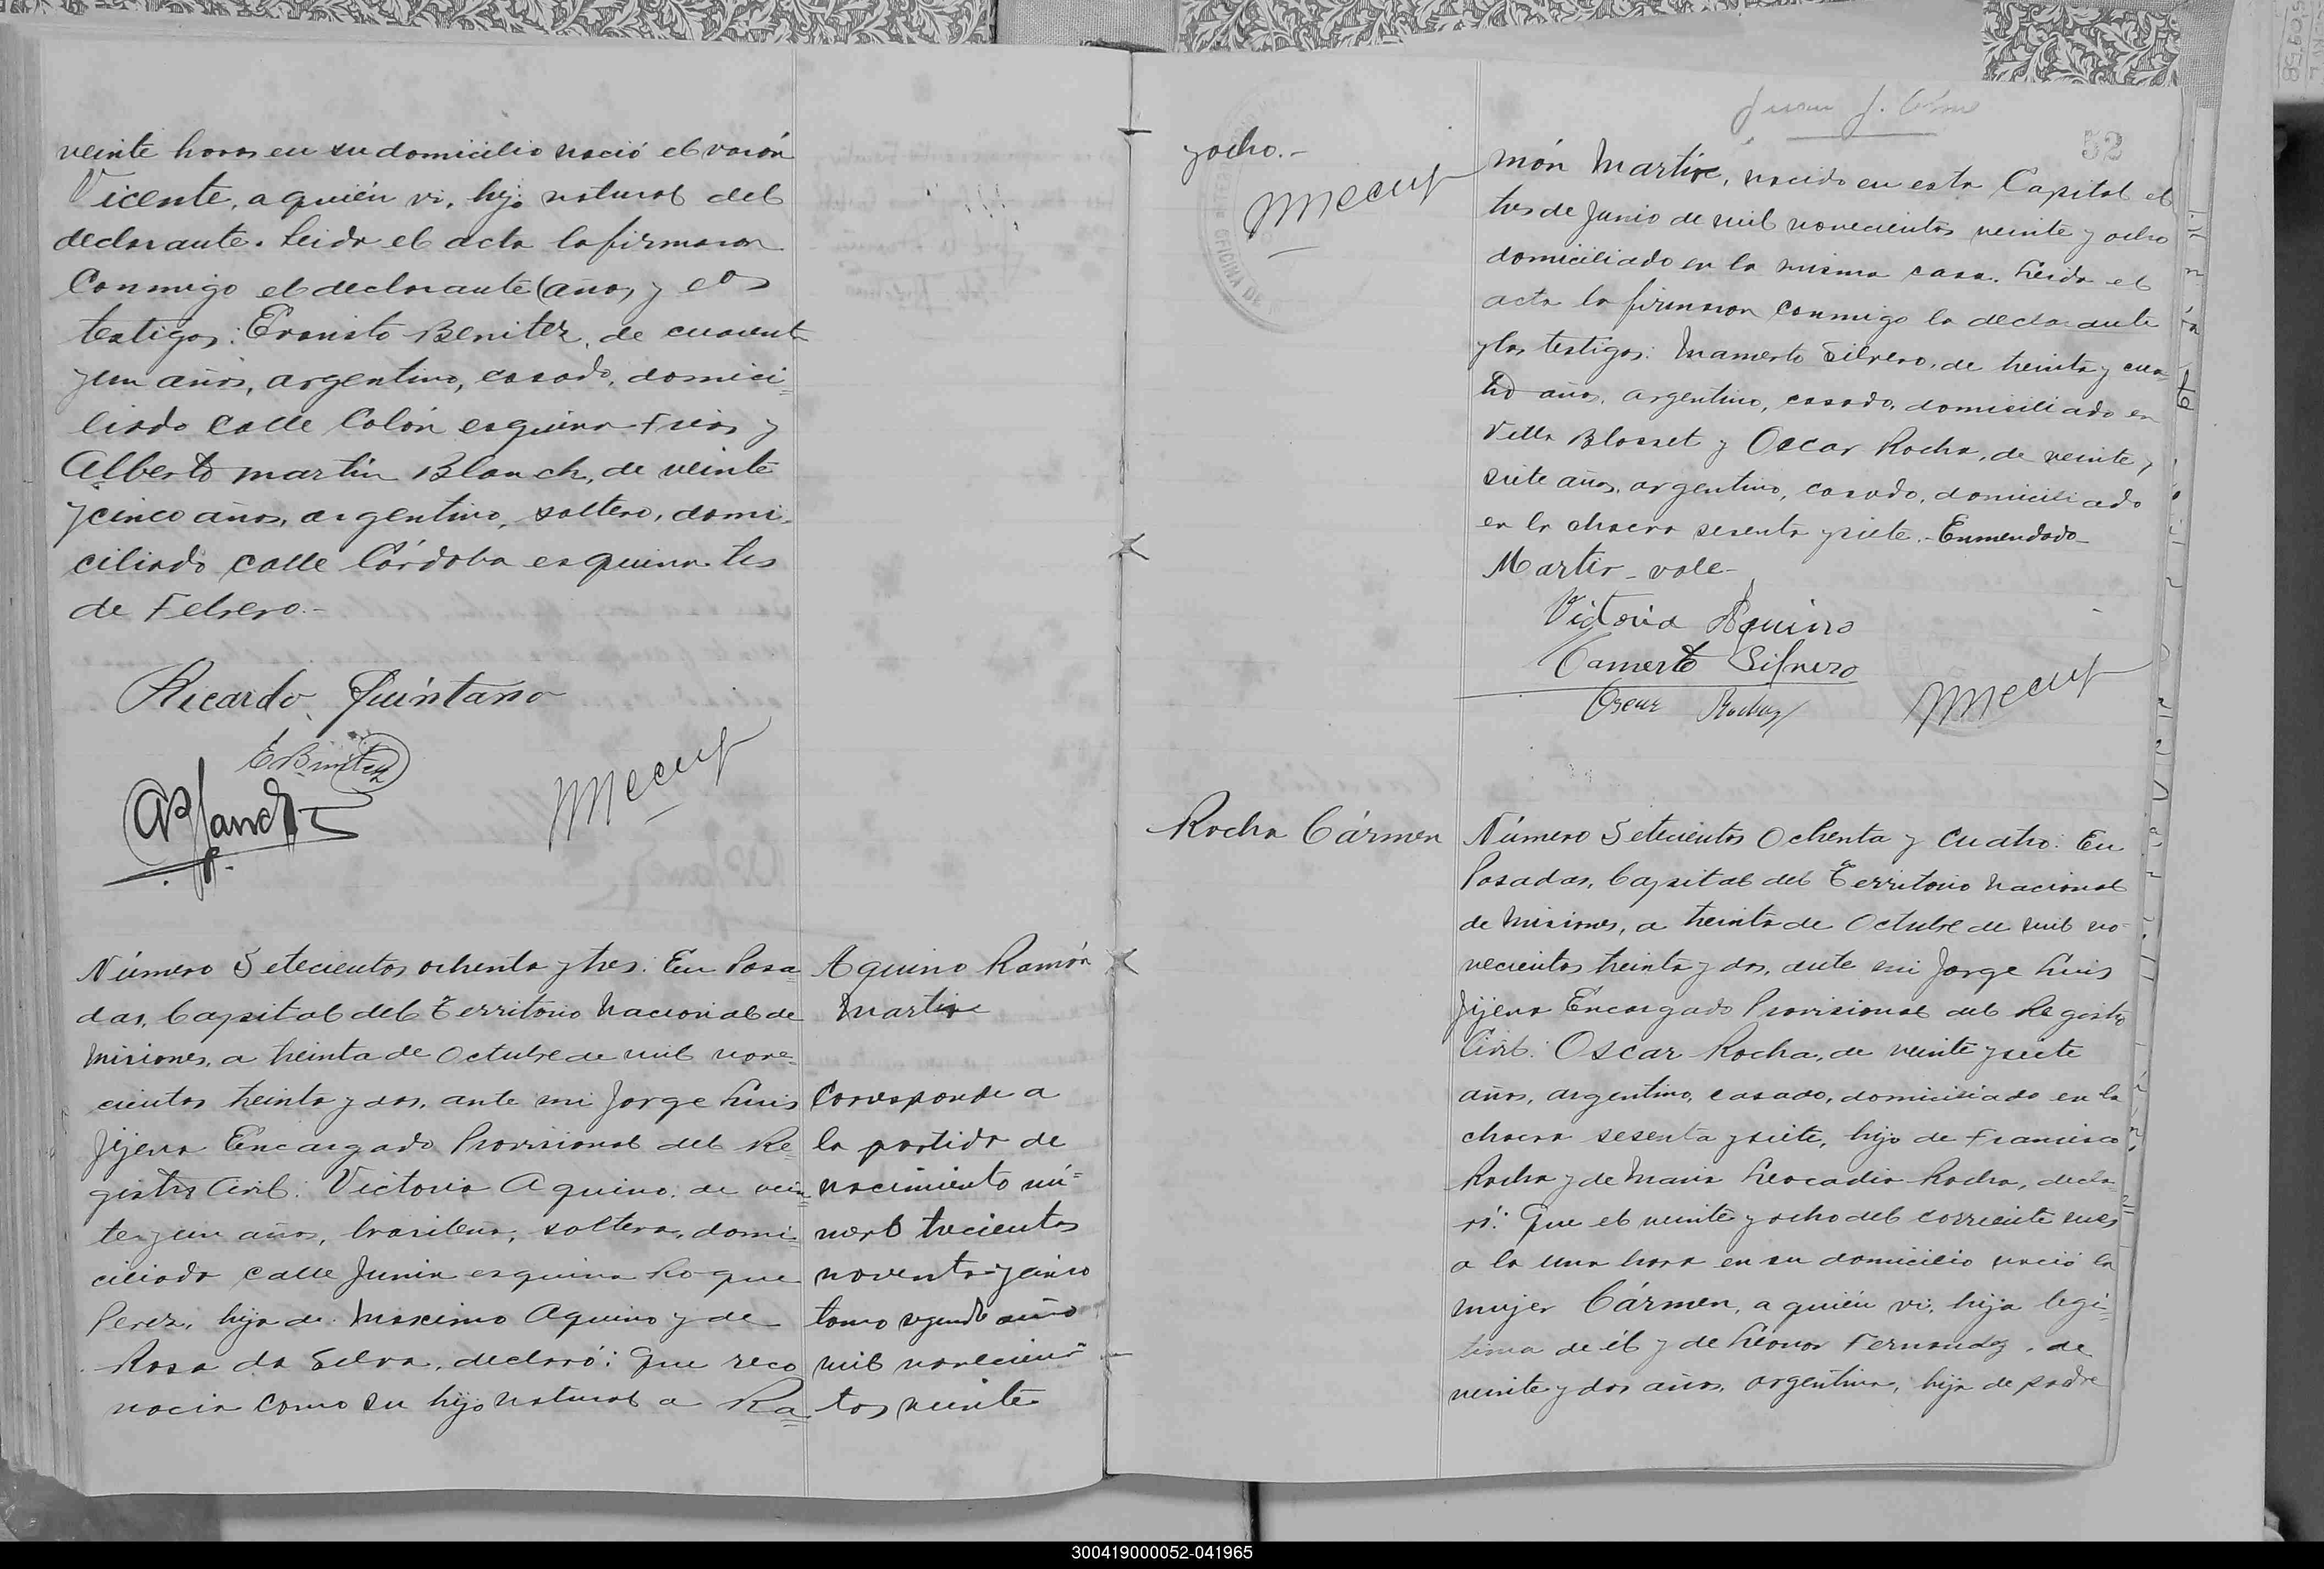 veinte horas en su domicilio nació el varón
Vicente, a quién vi, hijo natural del
declarante. Leida el acta la firmaron
conmigo el declarante (años y los
testigos: Evaristo Benitez, de cuarent
y un años, argentino, casado, domici=
liado calle Colón esquina Frias y
Alberto Martin Blanch, de veinte
y cinco años, argentino, soltero, domi-
ciliado calle Córdoba esquina tres
de Febrero.-
Ricardo Quintana
E Benitez
ABlanch
Número Setecientos ochenta y tres: En Posa=
das, Capital del Territorio Nacional de
Misiones, a treinta de Octubre de mil nove=
cientos treinta y dos, ante mi Jorge Luis
Jijena Encargado Provisional del Re=
gistro Civil: Victoria Aquino, de vein=
te y un años, brasileña, soltera, domi=
ciliada calle Junin esquina Roque
Perez, hija de Maximo Aquino y de
Rosa da Silva, declaró: Que reco
nocia como su hijo natural a Ra=
Aquino Ramón
Martir
Corresponde a
la partida de
nacimiento nú=
mero trecientos
noventa y cinco
tomo segundo año
mil novecien=
tos veinte
y ocho.-
52
món Martir, nacido en esta Capital el
tres de Junio de mil novecientos veinte y ocho
domiciliado en la misma casa. Leida el
acta la firmaron conmigo la declarante
y los testigos: Mamerto Silvero, de treinta y cua=
tro años, argentino, casado, domiciliado en
Villa Blosset y Oscar Rocha, de veinte y
siete años, argentino, casado, domiciliado
en la chacra sesenta y siete.- Enmendado-
Martir - vale-
Victoria Aquino
Mamerto Silvero
Oscar Rocha
Rocha Cármen
Número Setecientos Ochenta y Cuatro: En
Posadas, Capital del Territorio Nacional
de Misiones, a treinta de Octubre de mil no-
vecientos treinta y dos, ante mi Jorge Luis
Jijena Encargado Provisional del Registro
Civil: Oscar Rocha, de veinte y siete
años, argentino, casado, domiciliado en la
chacra sesenta y siete, hijo de Francisco
Rocha y de Maria Leocadia Rocha, decla-
ró: Que el veinte y ocho del corriente mes
a la una hora en su domicilio nació la
mujer Cármen, a quién vi, hija legi=
tima de él y de Leonor Fernandez, de
veinte y dos años, argentina, hija de padre
300419000052-041965